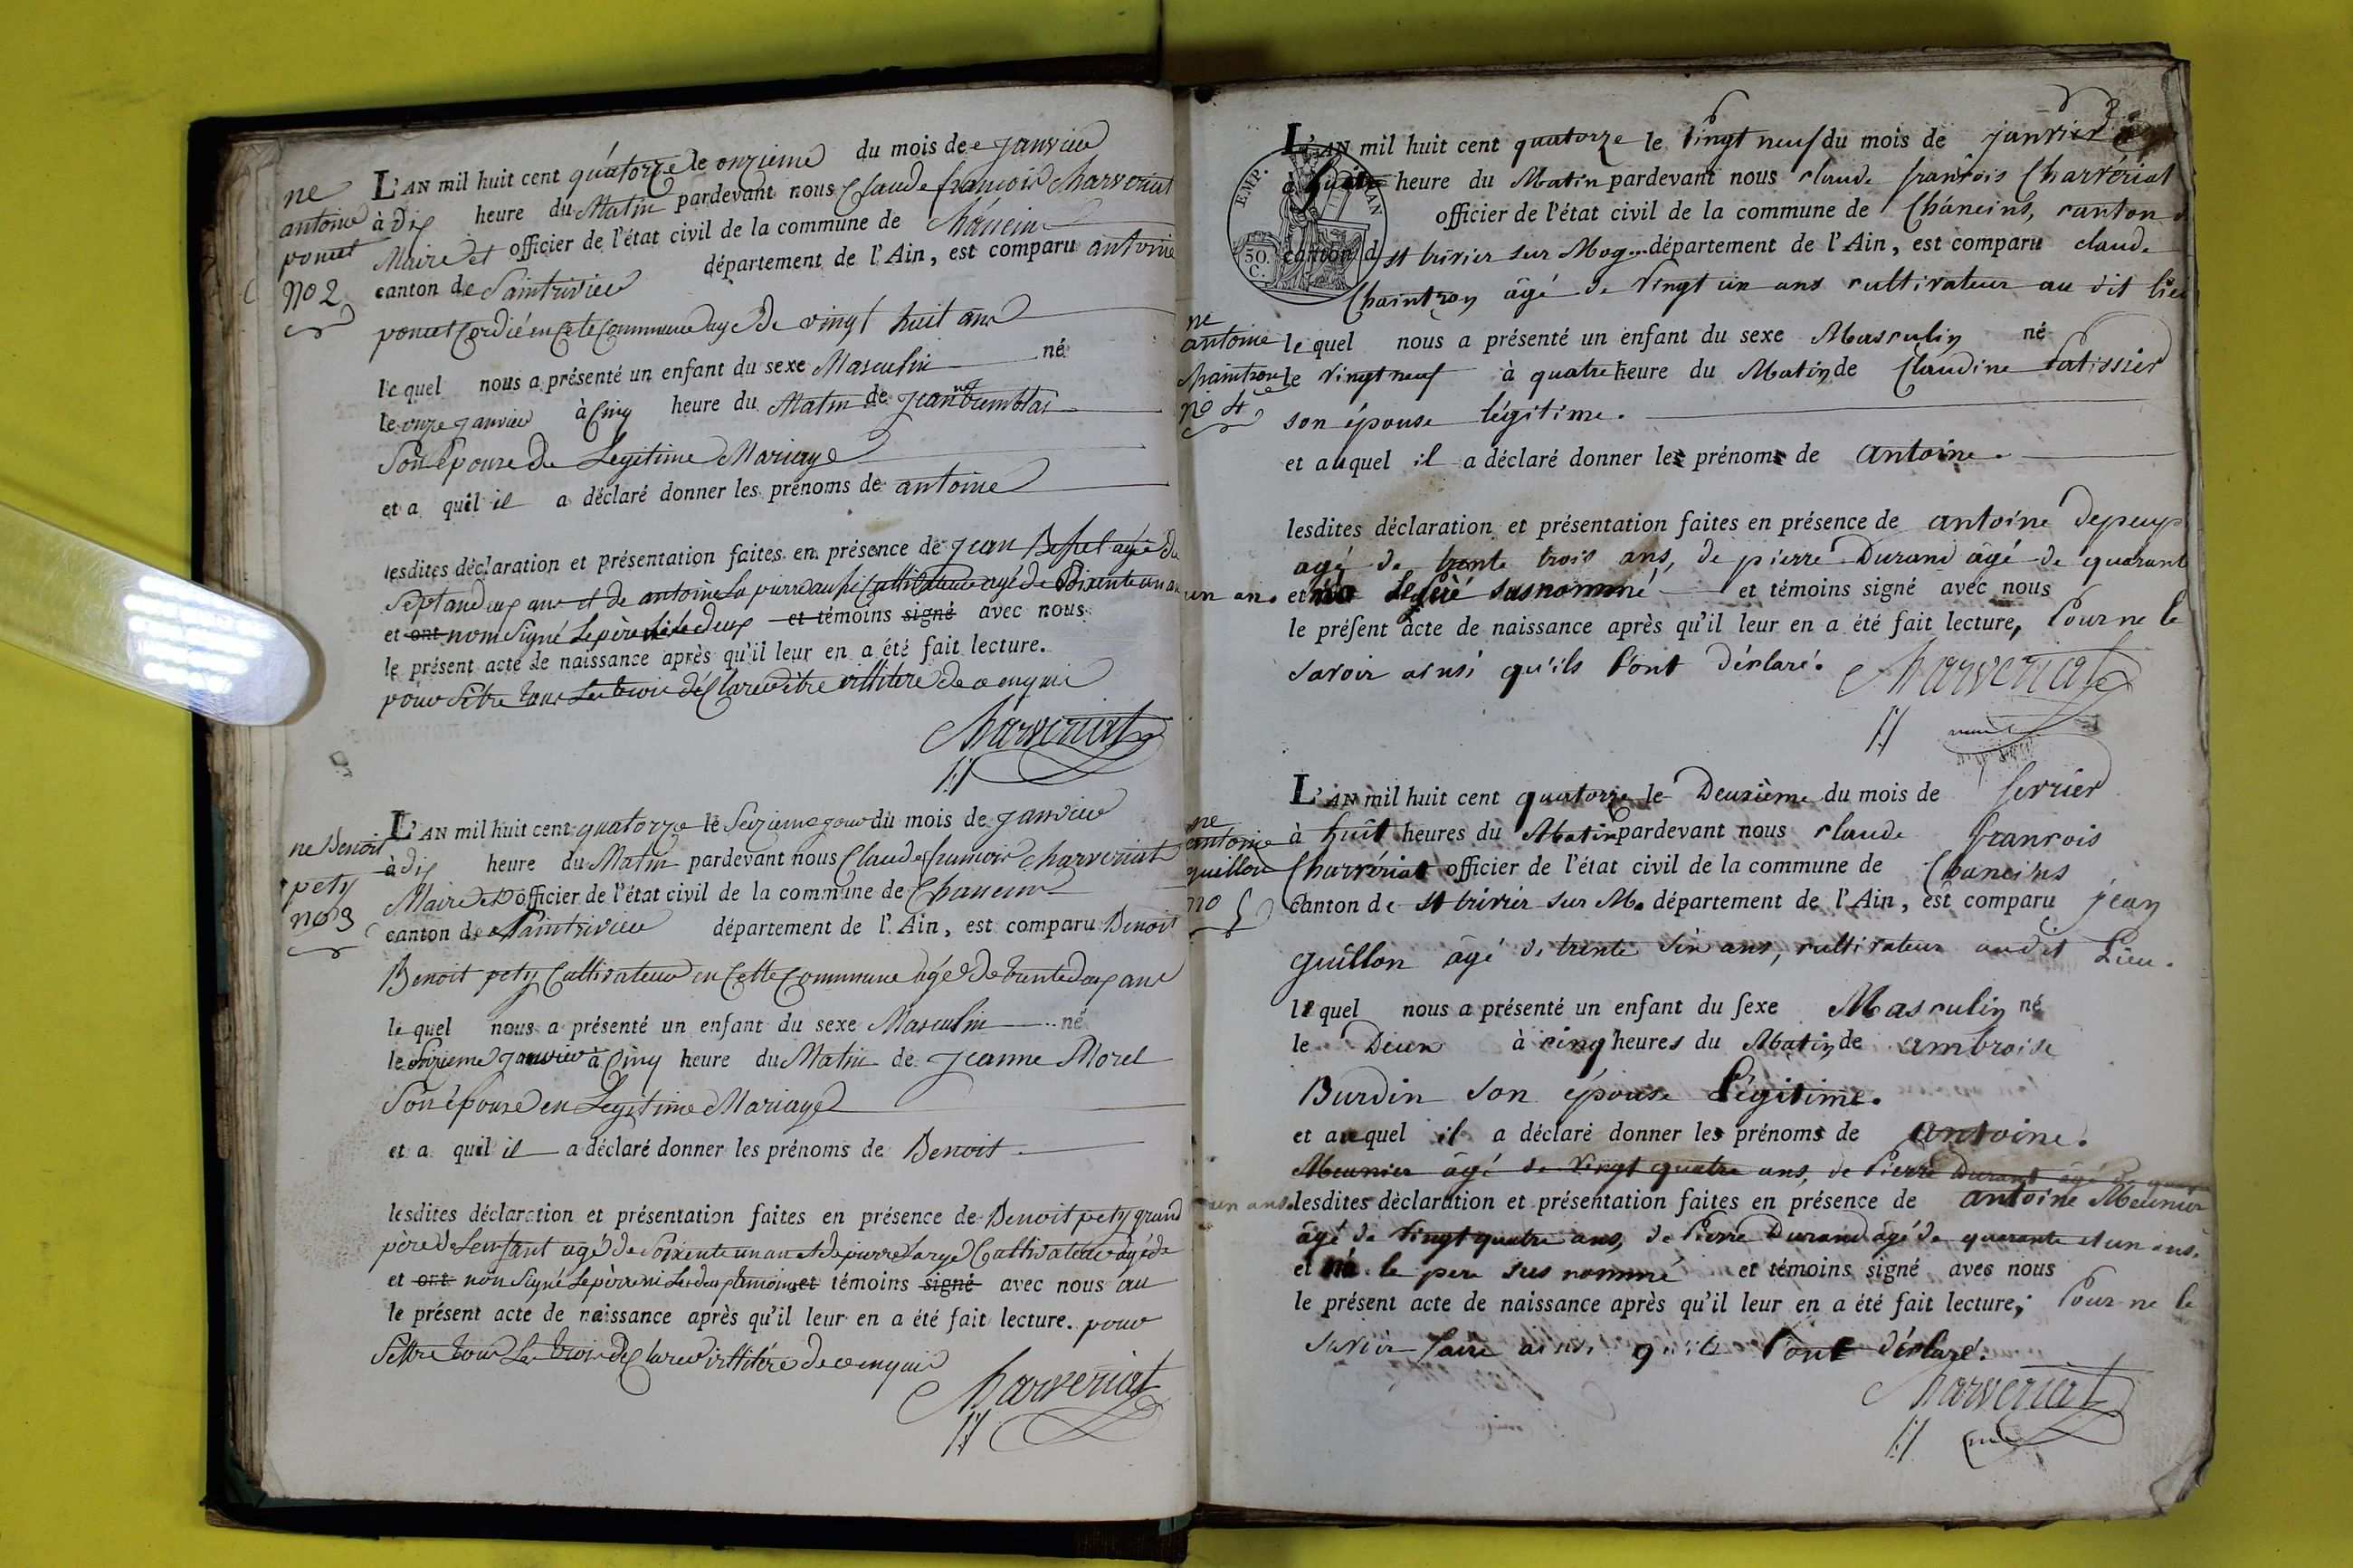 ne
antoine
poncet
no 2
L'AN mil huit cent quatorze le onzieme du mois de janvier
à dix heure du Matin pardevant nous Claude francois Charveriat
Maire et officier de l'état civil de la commune de Chaneins
canton de Saintrivier département de l'Ain, est comparu antoine
poncet Cordié en Cete Commune agé de vingt huit ans
le quel nous a présenté un enfant du sexe Masculin né
le onze janvier à Cinq heure du Matin de Jeanne tremblai
Son Epouse De Legitime Mariage
et a quel il a déclaré donner les prénoms de antoine
lesdites déclaration et présentation faites en présence de jean agée de
Septandeux ans et de antoine La pierre aussi Cultivateur agé de Soixente un an
et ont nom Signé Le père ni Le deux et témoins signé avec nous
le présent acte de naissance après qu'il leur en a été fait lecture.
pour Sêtre tous Les trois déClare être illitere de ce enquis
Charveriat
ne Benoit
pety
no 3
L'AN mil huit cent quatorze le Seizieme jour du mois de janvier
à dix heure du Matin pardevant nous Claude francois Charveriat
Maire et officier de l'état civil de la commune de Chaneins
canton de Saintrivier département de l'Ain, est comparu Benoit
Benoit pety Cultivateur en Cette Commune agé de trente deux ans
le quel nous a présenté un enfant du sexe Masculin né
le Seizieme janvier à Cinq heure du Matin de Jeanne Morel
Son épouse en Legitime Mariage
et a quel il a déclaré donner les prénoms de Benoit
lesdites déclaration et présentation faites en présence de Benoit pety grand
père de Lenfant agé de Soixente un an et de pierre Large Cultivateur agé de
et ont non Signé Le père ni Les deux temoins et témoins signé avec nous au
le présent acte de naissance après qu'il leur en a été fait lecture. pour
Sêttre tous Les trois déClare illitéré de ce enquis
Charveriat
EMP.
50.
C.
L'AN mil huit cent quatorze le Vingt neuf du mois de janvier
à heure du Matin pardevant nous claude francois Charvériat
officier de l'état civil de la commune de Chaneins, canton
canton d st trivier sur Mog... département de l'Ain, est comparu claude
Chaintron âgé de Vingt un ans cultivateur au dit lieu
ne
antoine
Chaintron
no 4
le quel nous a présenté un enfant du sexe Masculin né
le Vingt neuf à quatre heure du Matin de Claudine Patissier
son épouse légitime.
et auquel il a déclaré donner les prénoms de Antoine.
lesdites déclaration et présentation faites en présence de antoine
agé de trente trois ans, de pierre Durand âgé de quarante
un an. et susnommé et témoins signé avec nous
le présent acte de naissance après qu'il leur en a été fait lecture, Pour ne le
savoir ainsi qu'ils l'ont déclaré.
Charveriat
maire
ne
antoine
guillon
no 5
L'AN mil huit cent quatorze le Deuxième du mois de fevrier
à huit heures du Matin pardevant nous claude francois
Charvériat officier de l'état civil de la commune de Chaneins
Canton de st trivier sur M. département de l'Ain, est comparu jean
guillon âgé de trente six ans, cultivateur audit Lieu.
le quel nous a présenté un enfant du sexe Masculin né
le Deux à cinq heures du Matin de ambroise
Burdin son épouse Légitime.
et auquel il a déclaré donner les prénoms de Antoine.
Meunier âgé de Vingt quatre ans, de Pierre Durant âgé de quarante
un ans. lesdites déclaration et présentation faites en présence de antoine Meunier
âgé de Vingt quatre ans, de Pierre Durand âgé de quarante et un ans.
et ni le pere sus nommé et témoins signé avec nous
le présent acte de naissance après qu'il leur en a été fait lecture, Pour ne le
savoir faire ainsi qu'ils l'ont déclaré.
Charveriat